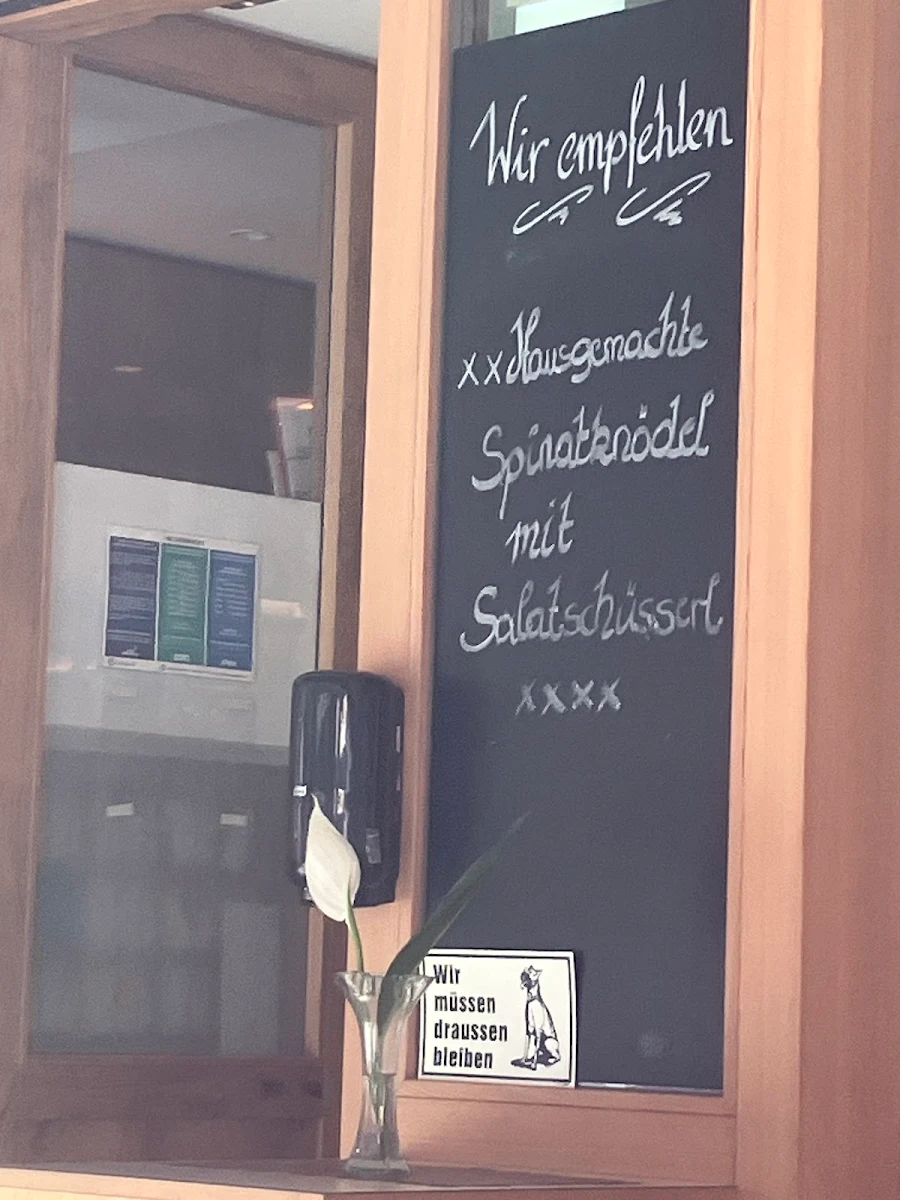 Wir empfehlen
xx Hausgemachte
Spinatknödel
mit
Salatschüsserl
xxxx
Wir
müssen
draussen
bleiben